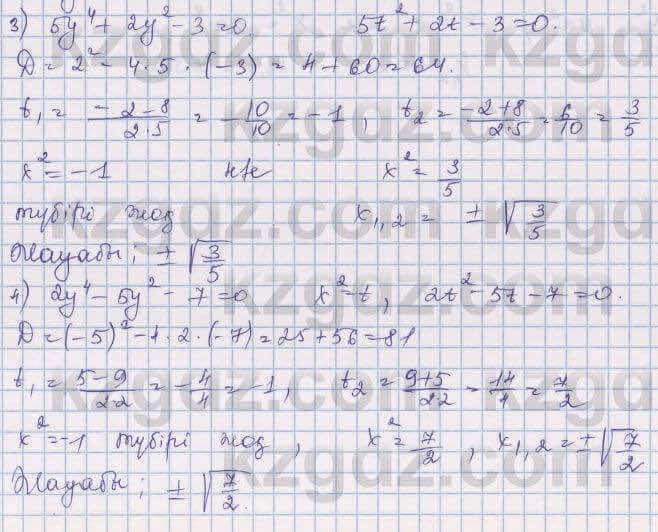 3) 5y⁴ + 2y² - 3 = 0. 5t² + 2t - 3 = 0.
D = 2² - 4·5·(-3) = 4 + 60 = 64.
t₁ = (-2-8)/(2·5) = -10/10 = -1, t₂ = (-2+8)/(2·5) = 6/10 = 3/5
x² = -1 x² = 3/5
түбірі жоқ x₁,₂ = ±√(3/5)
Жауабы; ±√(3/5)
4) 2y⁴ - 5y² - 7 = 0 x² = t, 2t² - 5t - 7 = 0.
D = (-5)² - 4·2·(-7) = 25 + 56 = 81
t₁ = (5-9)/(2·2) = -4/4 = -1, t₂ = (9+5)/(2·2) = 14/4 = 7/2
x² = -1 түбірі жоқ, x² = 7/2, x₁,₂ = ±√(7/2)
Жауабы; ±√(7/2).
kzgdz.com